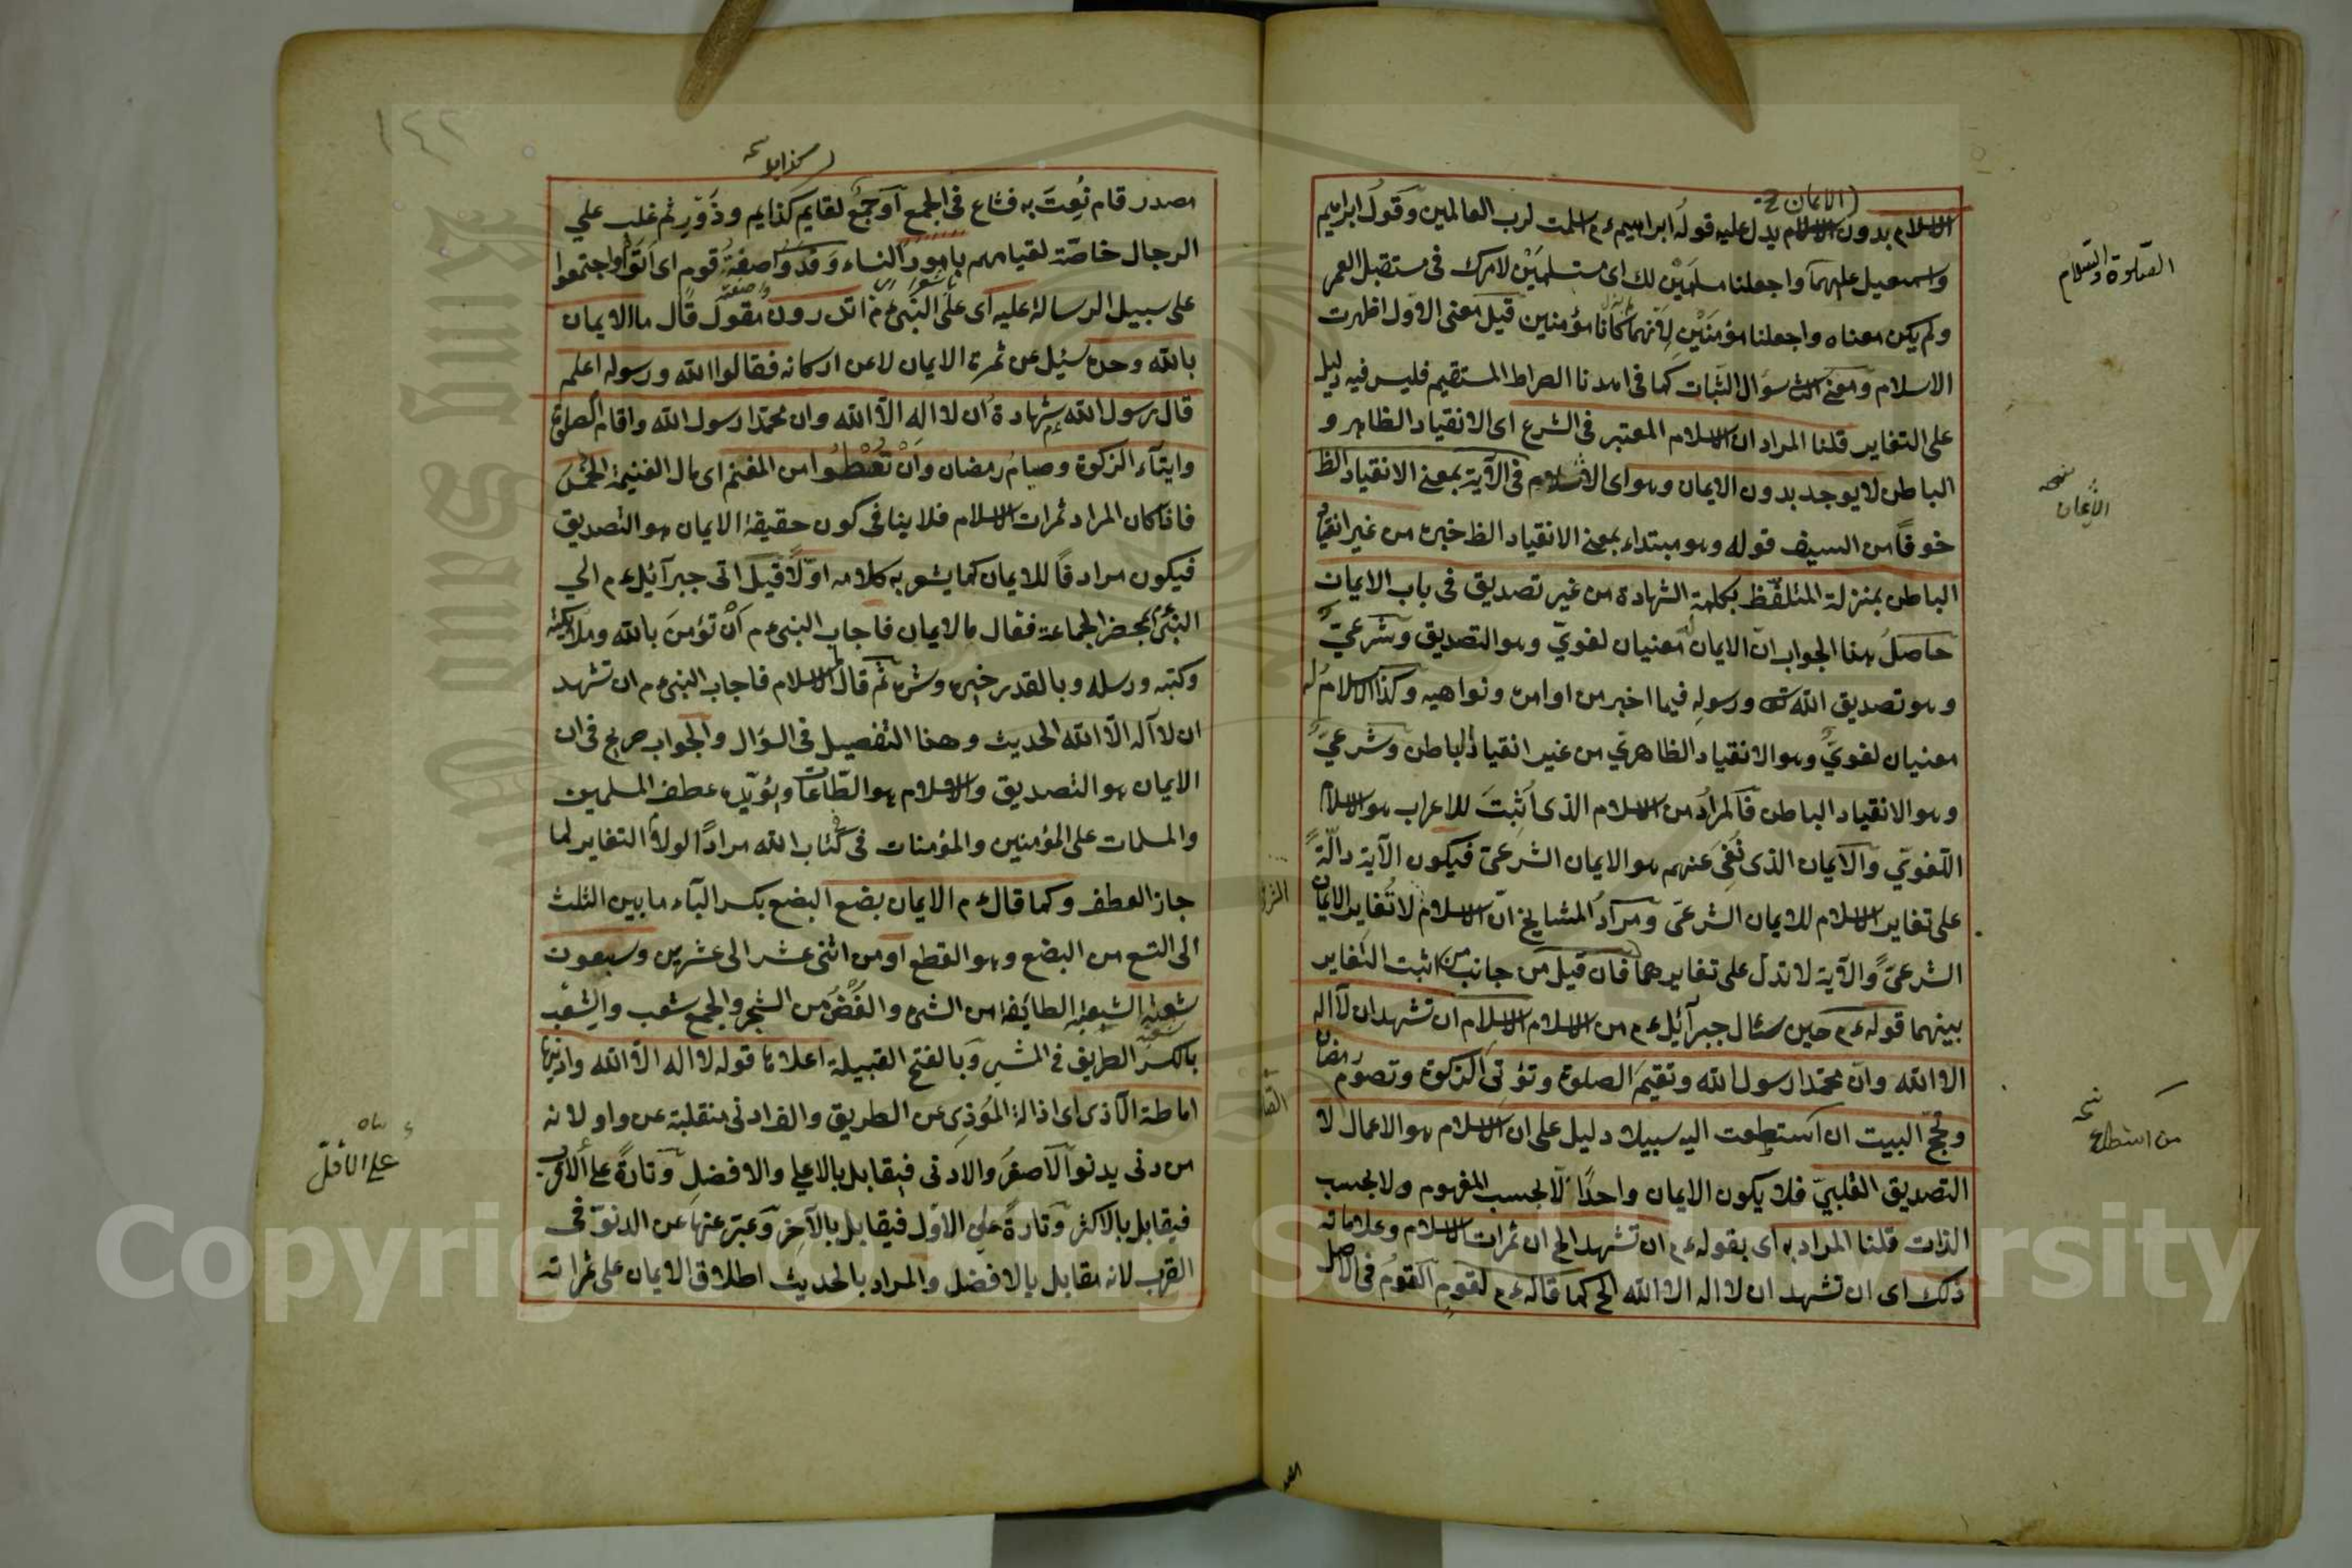 الاسلام بدون الاسلام يدل عليه قوله ابراهيم ءم اسلمت لرب العالمين وقول ابراهيم
(الايمان
واسمعيل عليهما واجعلنا مسلمين لك اى مستسلمين لامرك فى مستقبل العمر
الصلوة والسلام
ولم يكن معناه واجعلنا مؤمنين لانهما كانا مؤمنين قيل معنى الاول اظهرت
الاسلام ومعنى الث سؤال الثبات كما فى اهدنا الصراط المستقيم فليس فيه دليل
على التغاير قلنا المراد ان الاسلام المعتبر فى الشرع اى الانقياد الظاهر و
الباطن لا يوجد بدون الايمان وهو اى الاسلام فى الآية بمعنى الانقياد الظ
خوفًا من السيف قوله وهو مبتداء بمعنى الانقياد الظ خبره من غير انقياد
الباطن بمنزلة المتلفظ بكلمة الشهادة من غير تصديق فى باب الايمان
حاصل هذا الجواب ان الايمان له معنيان لغوىّ وهو التصديق وشرعىّ
وهو تصديق الله ورسوله فيما اخبر من اوامره ونواهيه وكذا الاسلام له
معنيان لغوىّ وهو الانقياد الظاهرى من غير انقياد الباطن وشرعىّ
وهو الانقياد الباطن فالمراد من الاسلام الذى اُثبتَ للاعراب هو الاسلام
اللغوىّ والايمان الذى نُفى عنهم هو الايمان الشرعىّ فيكون الآية دالّةً
على تغاير الاسلام للايمان الشرعى ومراد المشايخ انّ الاسلام لا تُغاير الايمان
الشرعىّ والآية لا تدلّ على تغايرهما فان قيل من جانب من اثبت التغاير
بينهما قوله ءم حين سئال جبرآئيل ءم من الاسلام الاسلام ان تشهد ان لا اله
الا الله وانّ محمّدا رسول الله وتقيم الصلوة وتؤتى الزكوة وتصوم رمضان
وتحجّ البيت ان استطعت اليه سبيلا دليل على ان الاسلام هو الاعمال لا
من استطاع
التصديق القلبىّ فلا يكون الايمان واحدًا لا بحسب المفهوم ولا بحسب
الذات قلنا المراد به اى بقوله ءم ان تشهد الخ ان ثمرات الاسلام وعلاماته
ذلك اى ان تشهد ان لا اله الا الله الخ كما قال ءم لقوم القوم فى الاصل
١٤٢
مصدر قام نُعِتَ به فشاع فى الجمع او جمع لقايم كذايم وذَوّرٍ ثم غلب على
الرجال خاصّة لقيامهم بامور النساء وَفَدوا صفةُ قوم اى اتوا واجتمعوا
على سبيل الرسالة عليه اى على النبى ءم اتدرون مقول قال ما الايمان
بالله وحده سئيل عن ثمرة الايمان لا عن اركانه فقالوا الله ورسوله اعلم
قال رسول الله ءم شهادة ان لا اله الّا الله وان محمّدا رسول الله واقام الصلوة
وايتآء الزكوة وصيام رمضان واَنْ تُعْطُوا من المغنم اى مال الغنيمة الخُمسَ
فاذا كان المراد ثمرات الاسلام فلا ينافى كون حقيقة الايمان هو التصديق
فيكون مرادفًا للايمان كما يشعر به كلامه اوّلًا قيل اتى جبرآئيل ءم الى
النبى بمحضر الجماعة فقال ما الايمان فاجاب النبى ءم اَنْ تؤمنَ بالله وملائكته
وكتبه ورسله وبالقدر خيره وشره ثم قال ما الاسلام فاجاب النبى ءم ان تشهد
ان لا آله الّا الله الحديث وهذا التفصيل فى السؤال والجواب صريح فى ان
الايمان هو التصديق والاسلام هو الطّاعات ويؤيّده عطف المسلمين
والمسلمات على المؤمنين والمؤمنات فى كتاب الله مرادًا لولا التغاير لما
جاز العطف وكما قال ءم الايمان بضع البضع بكسر البآء ما بين الثلث
الى التسع من البضع وهو القطع او من اثنى عشر الى عشرين وسبعون
شعبة الشعبة الطائفة من الشىء والغُصْنُ من الشجر والجمع شعب والشعب
بالكسر الطريق فى الجبل وبالفتح القبيلة اعلاها قوله لا اله الّا الله وادنيها
اماطة الاذى اى اذالة المؤذى عن الطريق والف ادنى منقلبة عن واو لانه
من دنى يدنو الاصغر والادنى فيقابل بالاعلى والافضل وتارةً على الاقرب
على الاقلّ
فيقابل بالاكثر وتارةً على الاول فيقابل بالآخر وعبّر عنها عن الدنوّ فى
القرب لانه مقابل بالافضل والمراد بالحديث اطلاق الايمان على ثمراته
Copyright © King Saud University